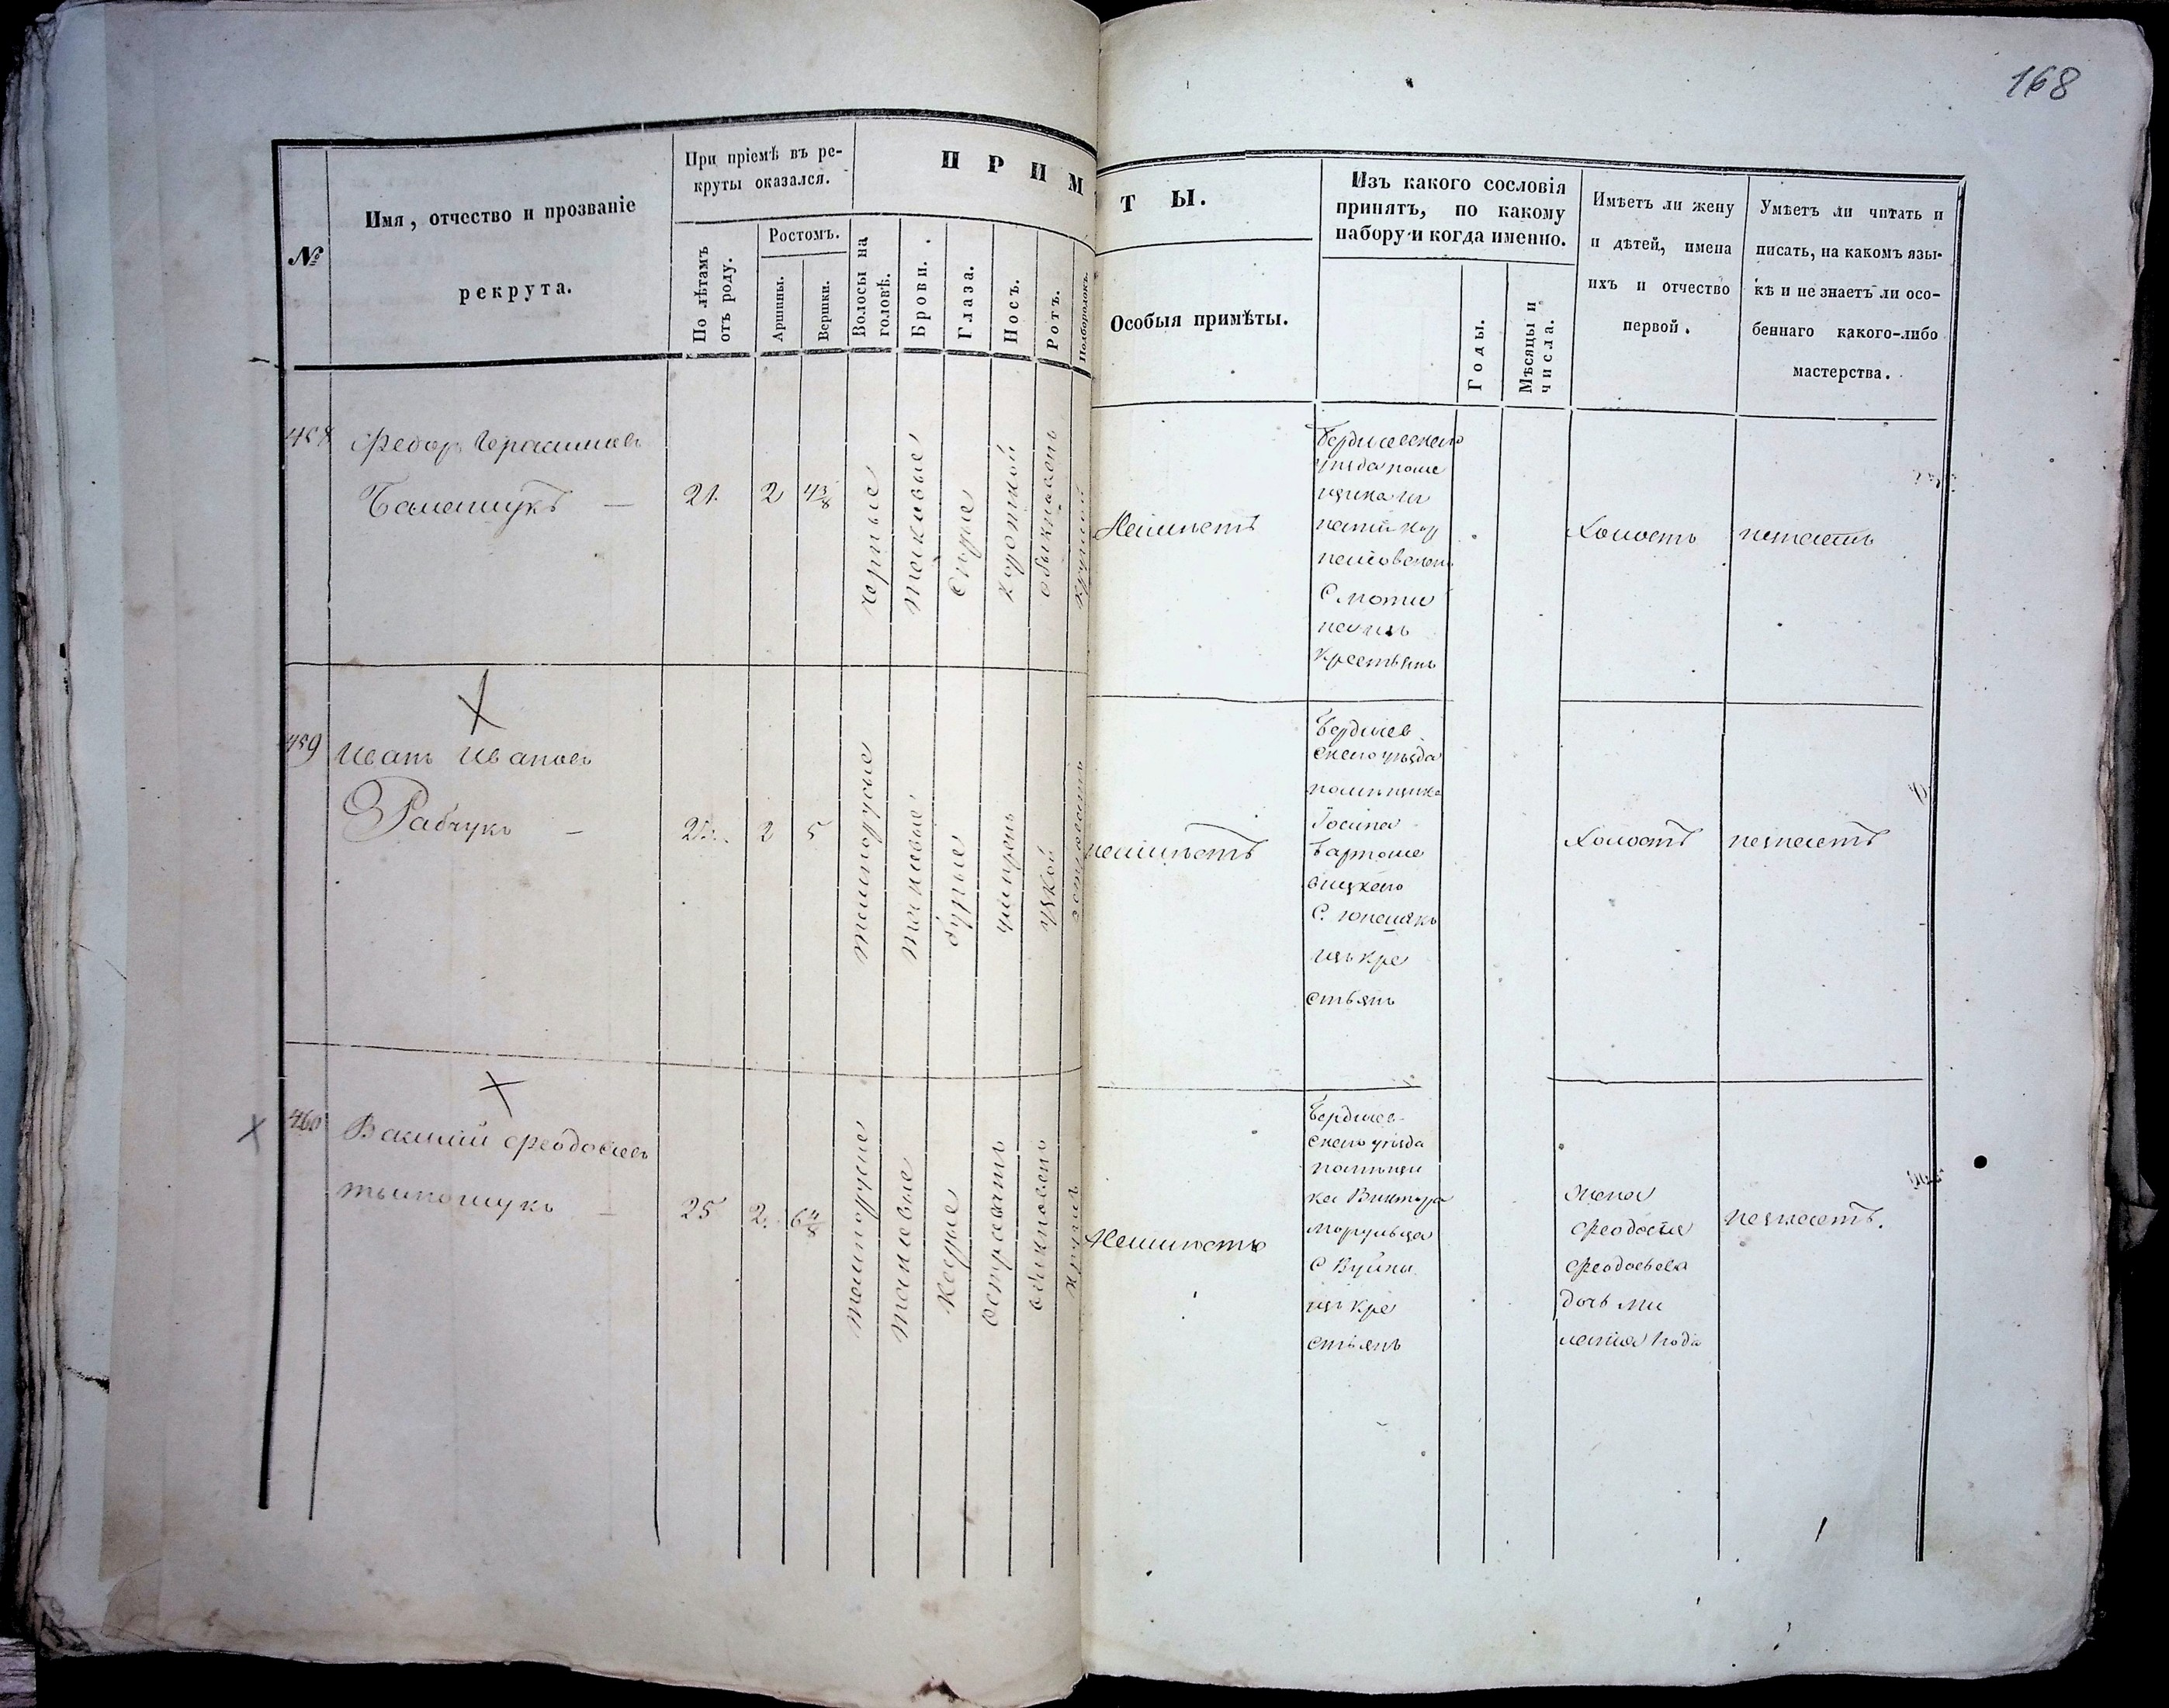 168
№
Имя, отчество и прозваніе
рекрута.
При пріемѣ въ ре-
круты оказался.
По лѣтамъ
отъ роду.
Ростомъ.
Аршины.
Вершки.
П Р И М
Т Ы.
Волосы на
головѣ.
Брови.
Глаза.
Носъ.
Ротъ.
Подбородокъ.
Особыя примѣты.
Изъ какого сословія
принятъ, по какому
набору и когда именно.
Годы.
Мѣсяцы и
числа.
Имѣетъ ли жену
и дѣтей, имена
ихъ и отчество
первой.
Умѣетъ ли читать и
писать, на какомъ язы-
кѣ и не знаетъ ли осо-
беннаго какого-либо
мастерства.
Федоръ Герасимовъ
21. 2 4 3/8
черные
таковые
сѣрые
короткой
обыкновенъ
круглый
Неимѣетъ
Бердичевскаго
уѣзда поме
щика
крестьянъ
Холостъ
незнаетъ
459 Иванъ Ивановъ
Рабчукъ
2 5
темнорусые
таковые
бурые
умѣренъ
узкой
неимѣетъ
Бердичев
скаго уѣзда
помѣщика
С.
цъ кре
стьянъ
Холостъ
незнаетъ
460 Василій Феодосіевъ
25 2. 6 4/8
темнорусые
таковые
карые
островатъ
круглъ
Неимѣетъ
Бердичев
скаго уѣзда
помѣщи
ка Виктора
С Буйки
цъ кре
стьянъ
Жена
Феодосія
Феодосьева
дочь Ми
ланія 1 года
незнаетъ.